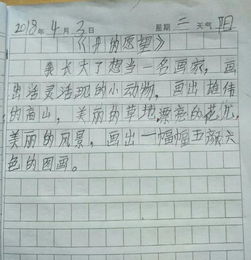 2018年4月3日 星期二 天气阴
《我的愿望》
我长大了想当一名画家，画
出活灵活现的小动物，画出雄伟
的高山，美丽的草地，漂亮的花朵，
美丽的风景，画出一幅幅五颜六
色的图画。